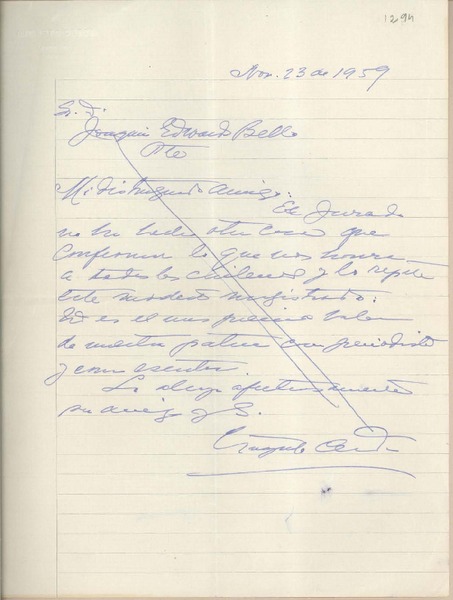 1294
Nov. 23 de 1959
Sr. D.
Joaquin Edwards Bello
Pte
Mi distinguido amigo:
El Jurado
no ha hecho otra cosa que
confirmar lo que nos honra
a todos los chilenos y lo repite
este modesto magistrado:
Ud es el mas genuino valor
de nuestra patria como periodista
y como escritor.
Lo abraza afectuosamente
su amigo y S.